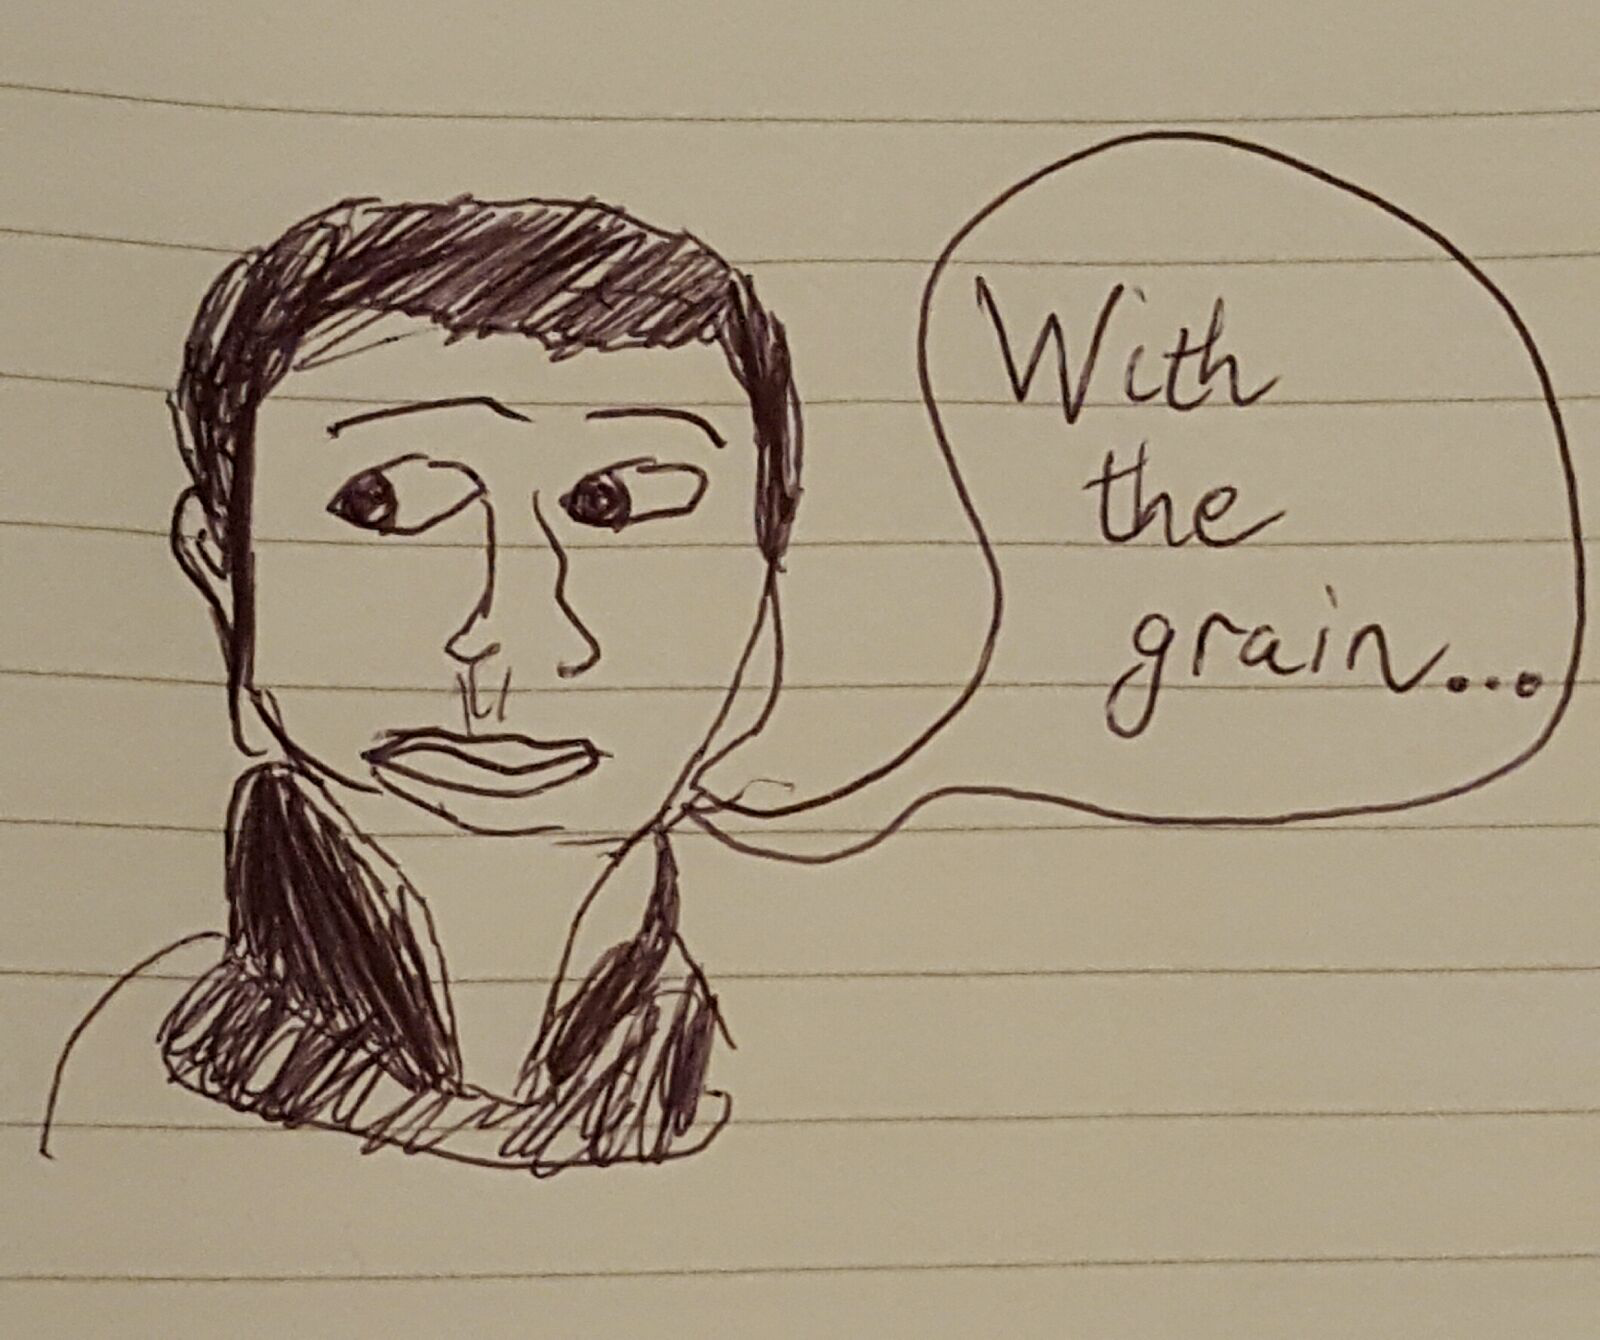 With
the
grain...